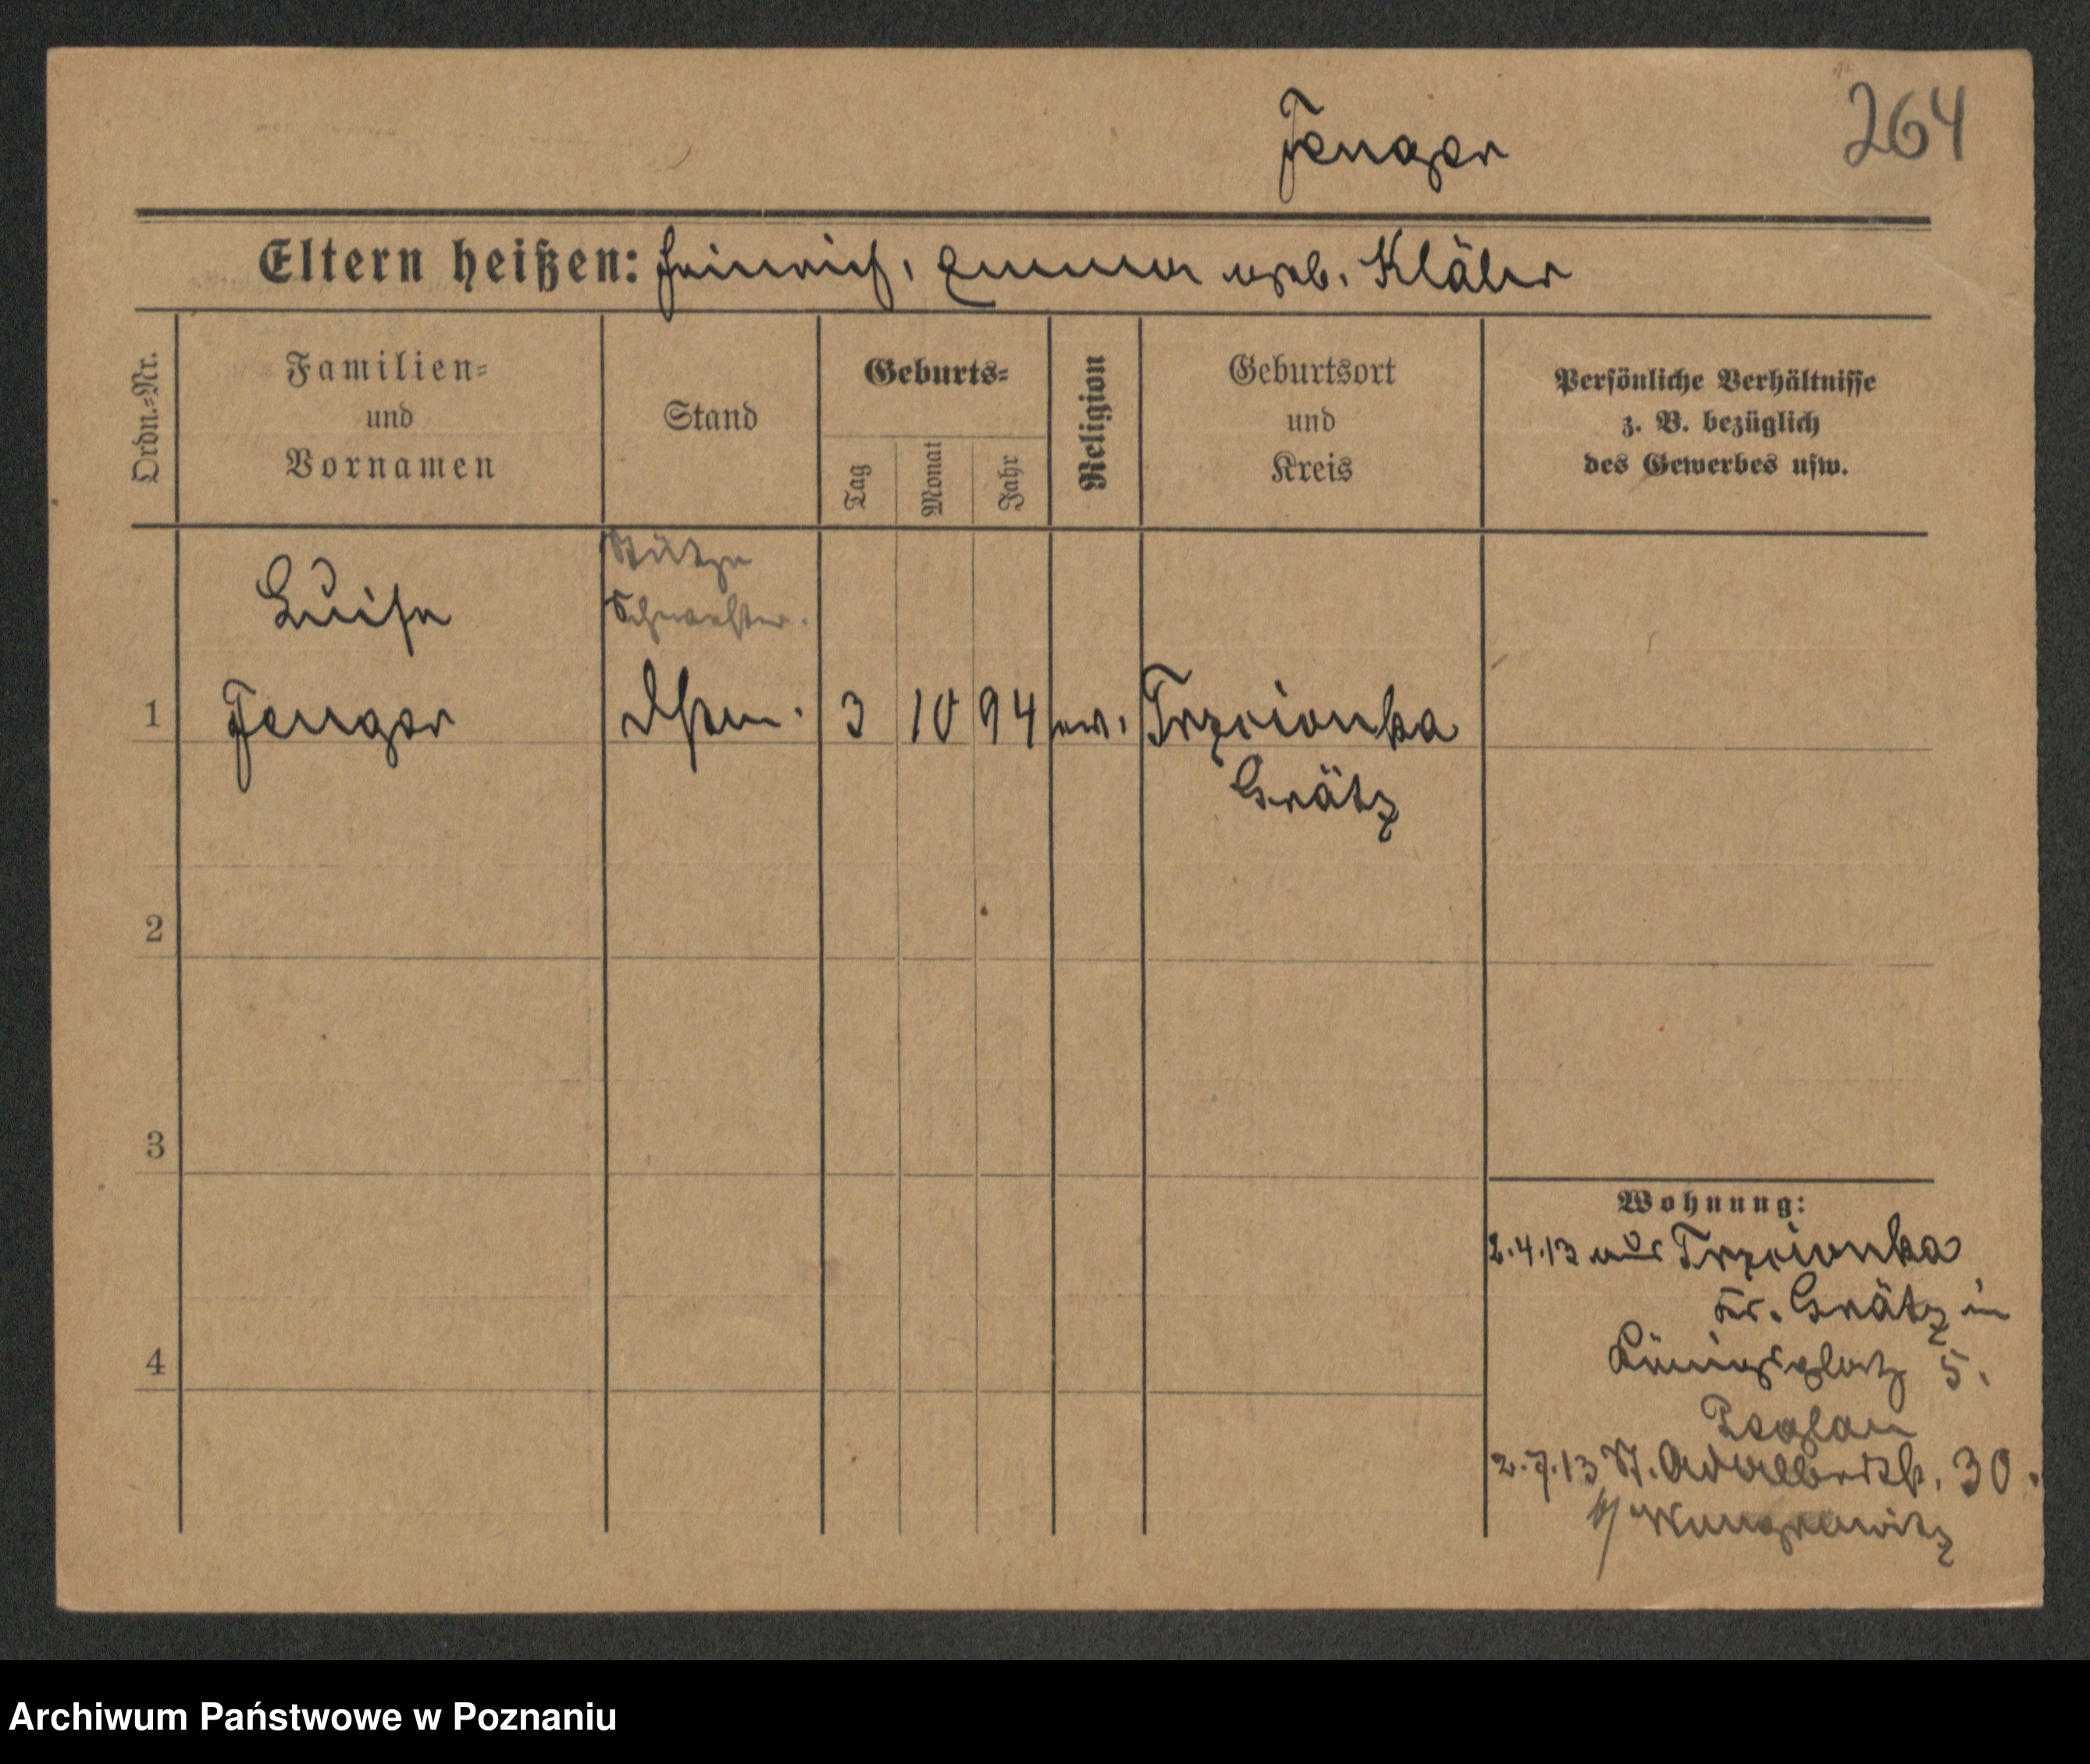 Fenger
264
Eltern heißen: Heinrich, Emma geb. Klähr
Ordn.-Nr.
Familien-
und
Vornamen
Stand
Geburts-
Tag
Monat
Jahr
Religion
Geburtsort
und
Kreis
Persönliche Verhältnisse
z. B. bezüglich
des Gewerbes usw.
Stütze
Schwester.
Luise
1 Fenger 3 10 94 ev. Trzcionka
Grätz
2
3
4
Wohnung:
2.4.13 aus Trzcionka
Kr. Grätz in
Königsplatz 5.
2.7.13 St. Adalbertstr. 30.
Wongrowitz
Archiwum Państwowe w Poznaniu